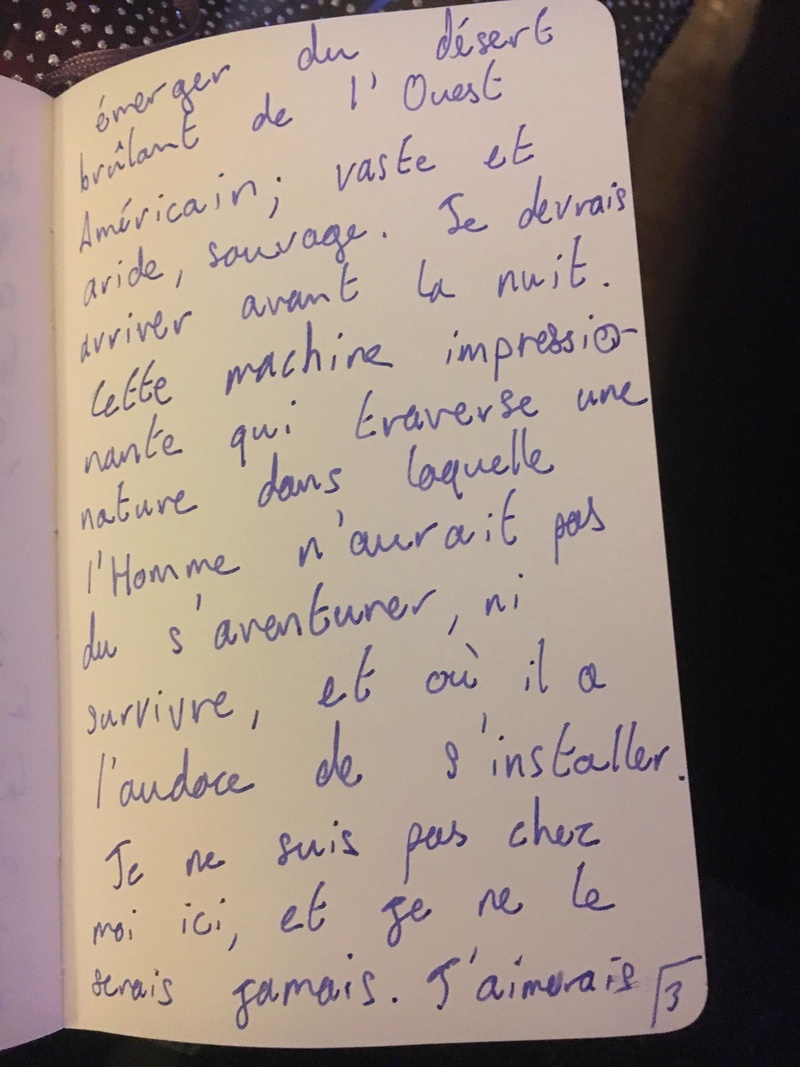 émerger du désert
brûlant de l'Ouest
Américain; vaste et
aride, sauvage. Je devrais
arriver avant la nuit.
Cette machine impressio-
nante qui traverse une
nature dans laquelle
l'Homme n'aurait pas
du s'aventurer, ni
survivre, et où il a
l'audace de s'installer.
Je ne suis pas chez
moi ici, et je ne le
serais jamais. J'aimerais
3